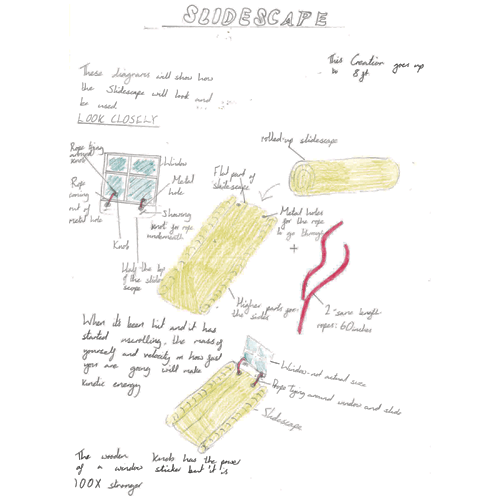 SLIDESCAPE
This Creation goes up
to 8 ft.
These diagrams will show how
the Slidescape will look and
be used
LOOK CLOSELY
rolled-up slidescape
Rope tying
around
knob
Window
Metal
hole
Rope
coming
out of
metal hole
Showing
knot for rope
underneath
Knob
the top
of the slide
scape
Flat part of
slidescape
Metal holes
for the rope
to go through
+
Higher parts for
the sides
2 same length
ropes: 60 inches
When it's been hit and it has
started unscrolling, the mass of
yourself and velocity on how fast
you are going will make
kinetic energy
Window - not actual size
Rope tying around window and slide
Slidescape
The wooden Knob has the power
of a window sticker but it is
100X stronger